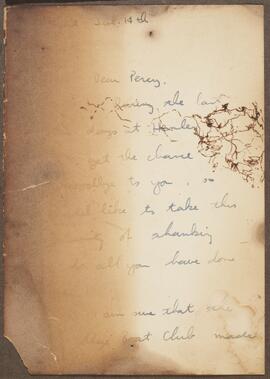 Jul. 14th
Dear Percy,
during the last
days at Henley
get the chance
goodbye to you, so
like to take this
of thanking
all you have done
am sure that we
Boat Club made